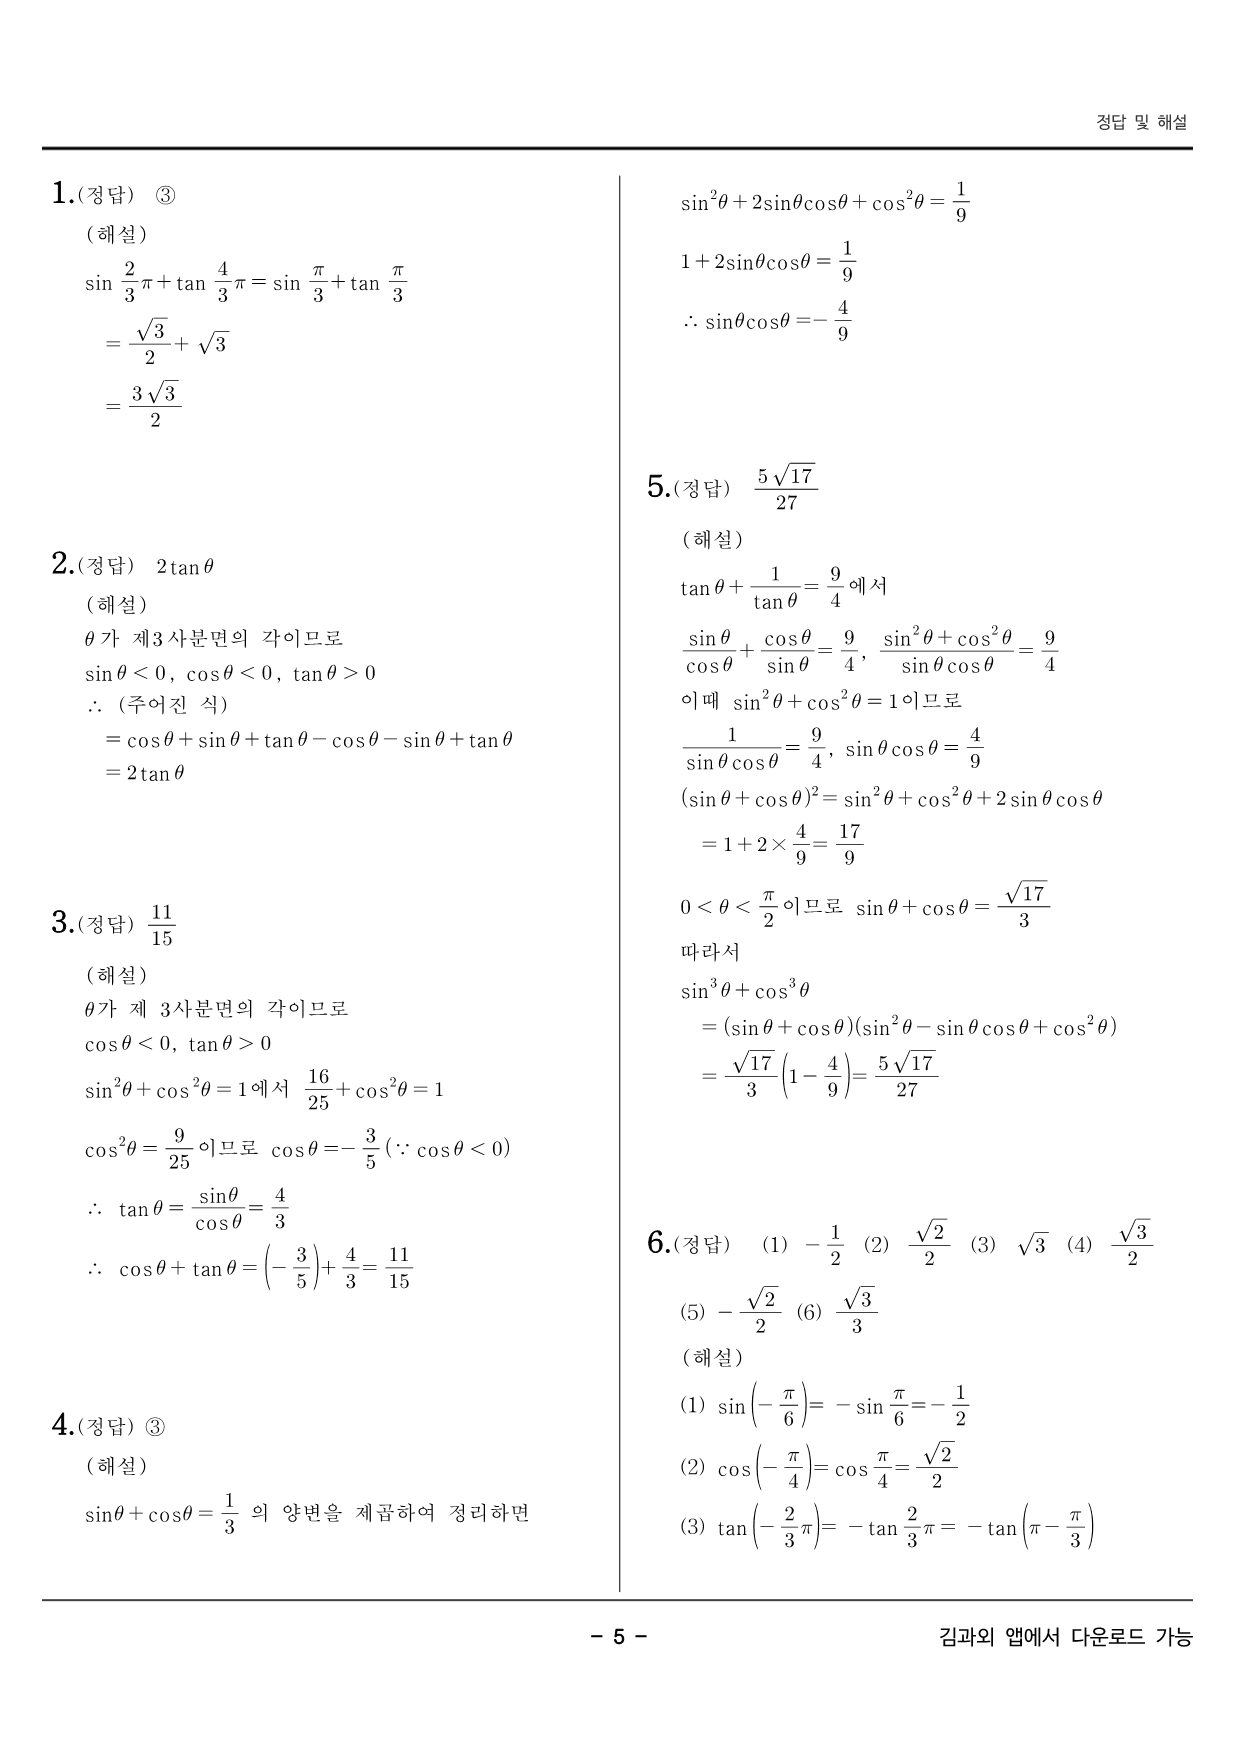 정답 및 해설
1.(정답) ③
(해설)
sin 2/3 π + tan 4/3 π = sin π/3 + tan π/3
= √3/2 + √3
= 3√3/2
2.(정답) 2tanθ
(해설)
θ가 제3사분면의 각이므로
sinθ < 0, cosθ < 0, tanθ > 0
∴ (주어진 식)
= cosθ + sinθ + tanθ − cosθ − sinθ + tanθ
= 2tanθ
3.(정답) 11/15
(해설)
θ가 제 3사분면의 각이므로
cosθ < 0, tanθ > 0
sin²θ + cos²θ = 1에서 16/25 + cos²θ = 1
cos²θ = 9/25 이므로 cosθ = − 3/5 (∵ cosθ < 0)
∴ tanθ = sinθ/cosθ = 4/3
∴ cosθ + tanθ = (− 3/5) + 4/3 = 11/15
4.(정답) ③
(해설)
sinθ + cosθ = 1/3 의 양변을 제곱하여 정리하면
sin²θ + 2sinθcosθ + cos²θ = 1/9
1 + 2sinθcosθ = 1/9
∴ sinθcosθ = − 4/9
5.(정답) 5√17/27
(해설)
tanθ + 1/tanθ = 9/4 에서
sinθ/cosθ + cosθ/sinθ = 9/4, (sin²θ + cos²θ)/(sinθcosθ) = 9/4
이때 sin²θ + cos²θ = 1이므로
1/(sinθcosθ) = 9/4, sinθcosθ = 4/9
(sinθ + cosθ)² = sin²θ + cos²θ + 2sinθcosθ
= 1 + 2 × 4/9 = 17/9
0 < θ < π/2 이므로 sinθ + cosθ = √17/3
따라서
sin³θ + cos³θ
= (sinθ + cosθ)(sin²θ − sinθcosθ + cos²θ)
= √17/3 (1 − 4/9) = 5√17/27
6.(정답) (1) − 1/2 (2) √2/2 (3) √3 (4) √3/2
(5) − √2/2 (6) √3/3
(해설)
(1) sin(− π/6) = − sin π/6 = − 1/2
(2) cos(− π/4) = cos π/4 = √2/2
(3) tan(− 2/3 π) = − tan 2/3 π = − tan(π − π/3)
- 5 -
김과외 앱에서 다운로드 가능